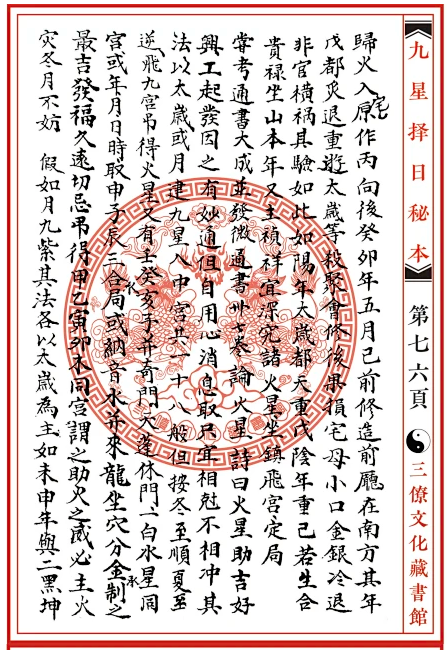 九星择日秘本
第七六頁
三僚文化藏書館
歸火入宅原作丙向後癸卯年五月己前修造前廳在南方其年
戊都炙退重遊太歲等殺聚會修後果損宅母小口金銀冷退
非官橫禍其驗如此如陽年太歲都天重戊陰年重己若生合
貴祿坐山本年又主禎祥宜深究諸火星坐鎮飛宮定局
嘗考通書大成並發微通書卅七卷論火星詩曰火星助吉好
興工起發因之有妙通但自用心消息取只宜相尅不相冲其
法以太歲或月建九星入中宮共一十八般但按冬至順夏至
逆飛九宮弔得火星又有壬癸亥子并奇門天蓬休門一白水星同
宮或年月日時取申子辰三合水局或納音水并來龍坐穴分金制之
最吉發福久遠切忌弔得甲乙寅卯木同宮謂之助火之威必主火
灾冬月不妨 假如月九紫其法各以太歲為主如未申年與二黑坤
承